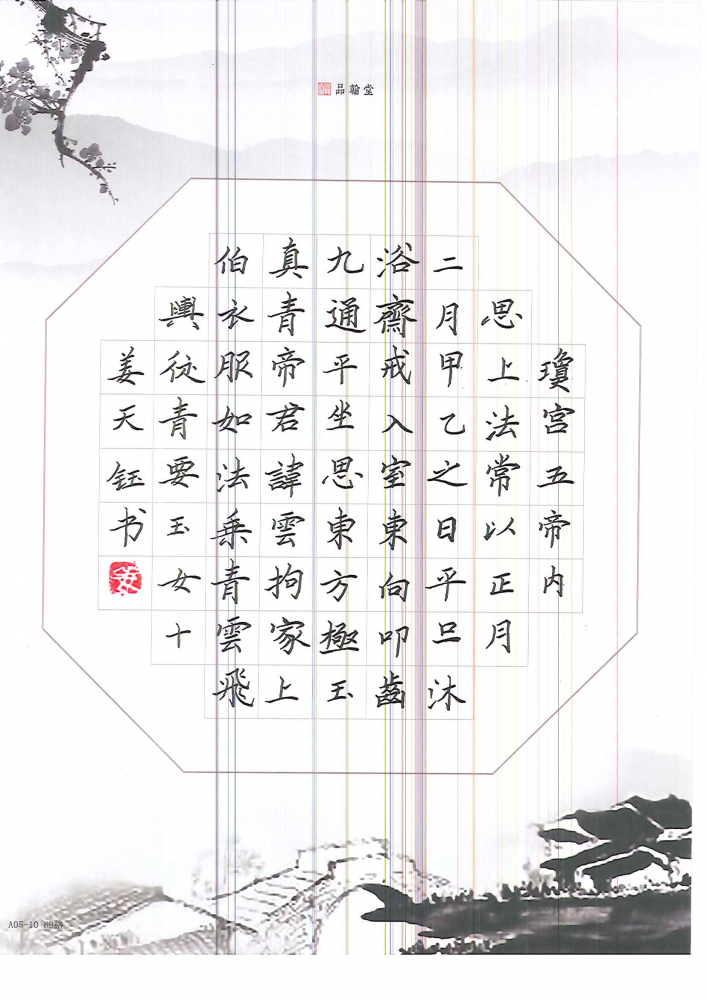 品翰堂
瓊宫五帝内
思上法常以正月
二月甲乙之日平旦沐
浴齋戒入室東向叩齒
九通平坐思東方極玉
真青帝君諱雲拘家上
伯衣服如法乗青雲飛
輿從青要玉女十
姜天钰书
姜
A05-10 69格